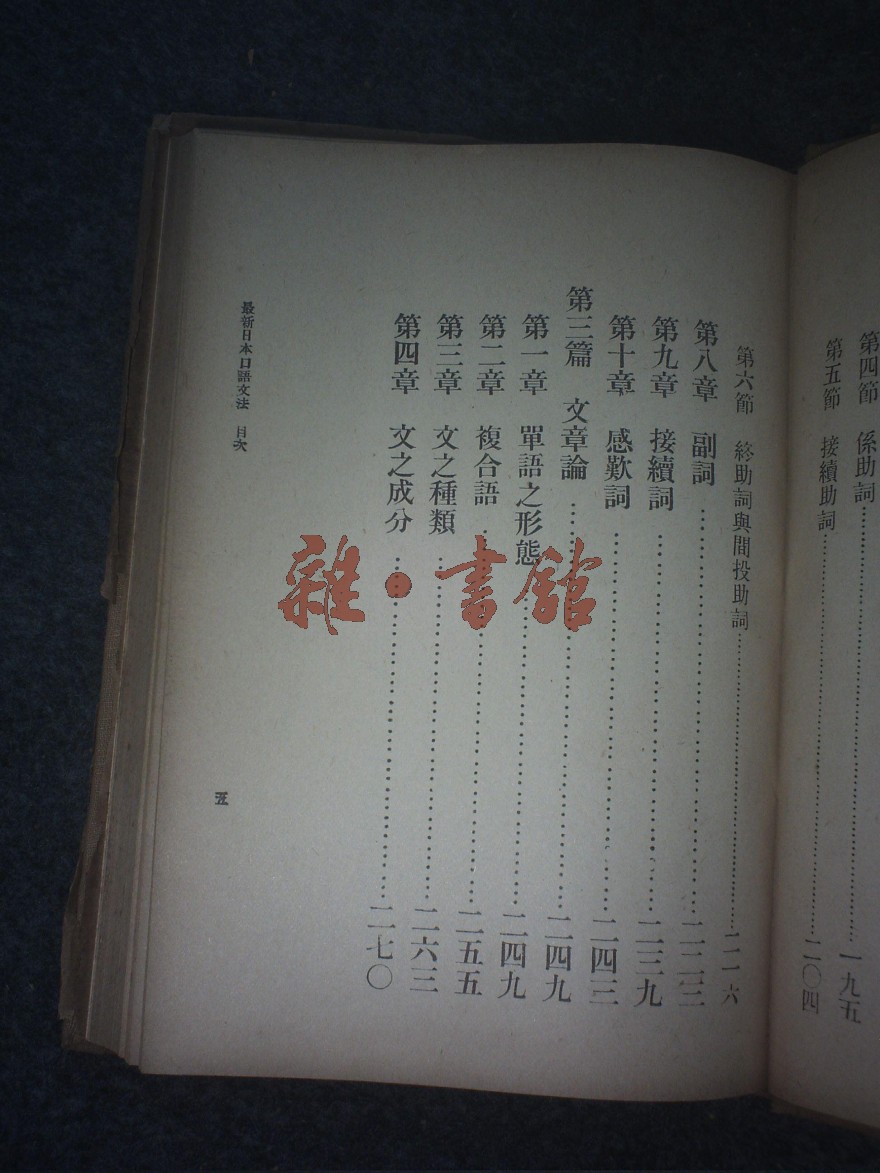 第四節　係助詞……一九五
第五節　接續助詞……二〇四
第六節　終助詞與間投助詞……二一六
第八章　副詞……二二三
第九章　接續詞……二三九
第十章　感歎詞……二四三
第三篇　文章論……二四九
第一章　單語之形態……二四九
第二章　複合語……二五五
第三章　文之種類……二六三
第四章　文之成分……二七〇
最新日本口語文法　目次
五
雜·書館